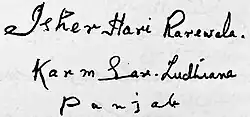 Isher Hari Rarewala.
Karm Sar. Ludhiana
Panjab